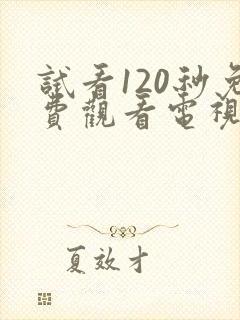 試看120秒免
費觀看電視
夏效才